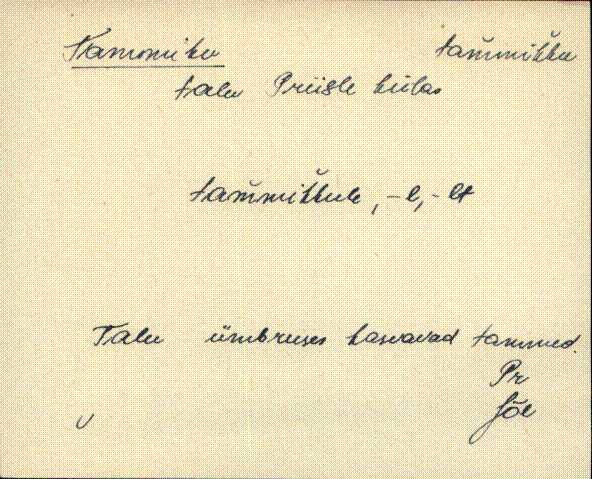 Tammiku tam̆mik̆ku
talu Priisle külas
tam̆mik̆kule, -l, -lt
Talu ümbruses kasvavad tammed.
Pr
Jõe